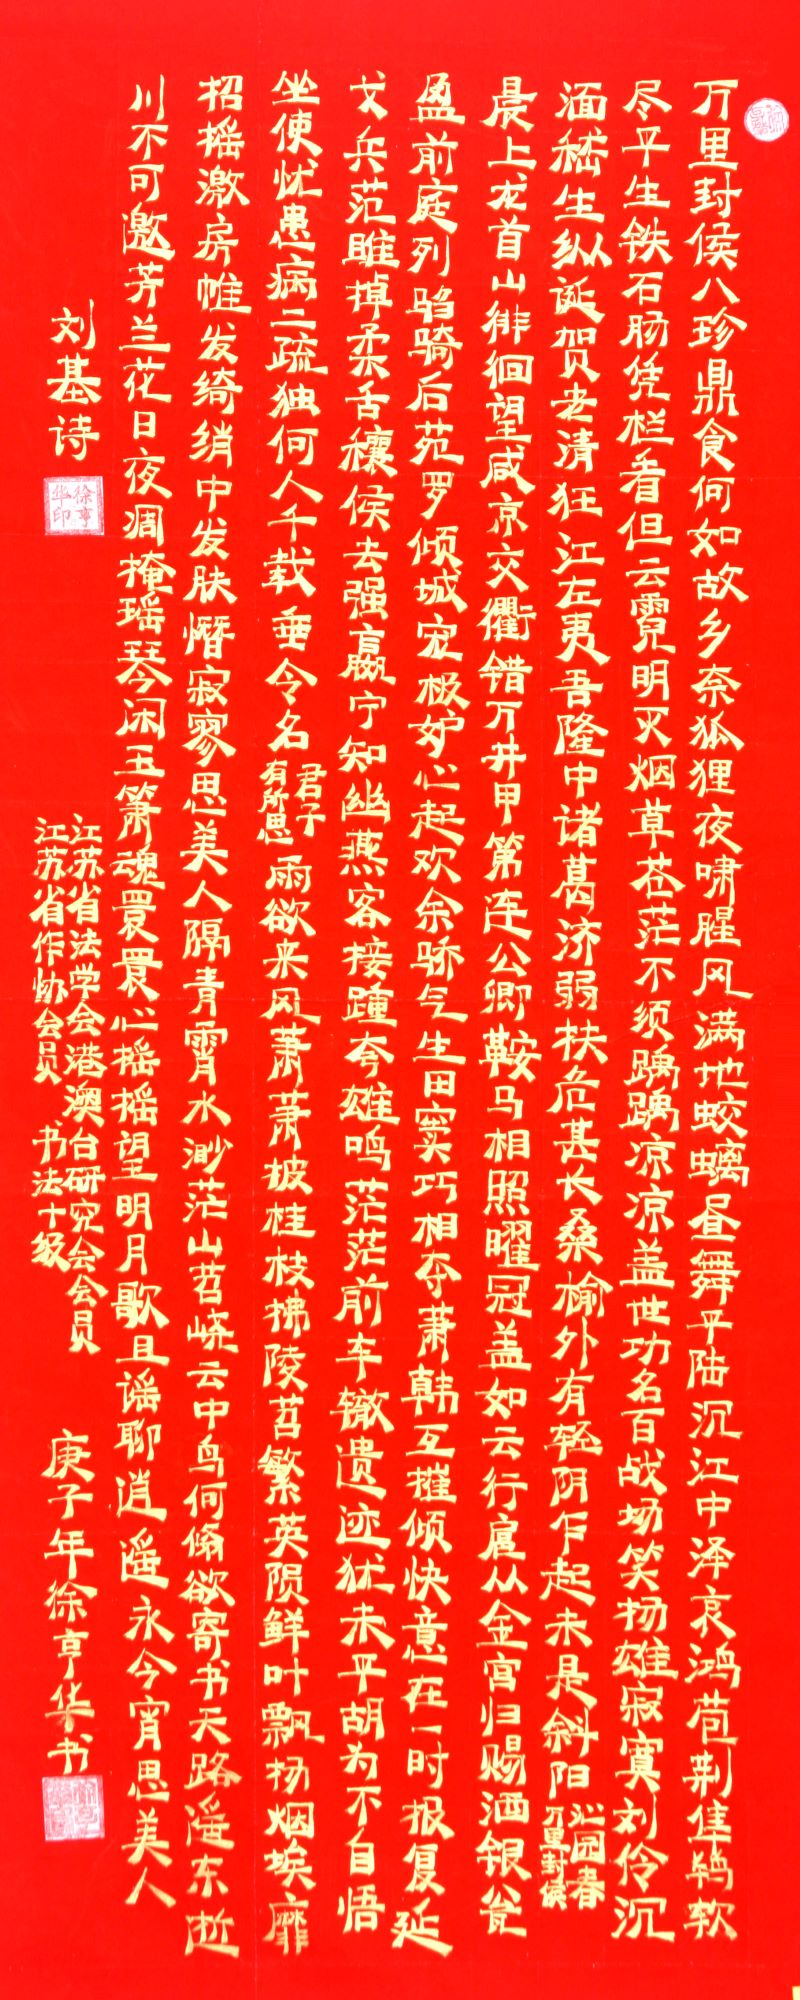 万里封侯八珍鼎食何如故乡奈狐狸夜啸腥风满地蛟螭昼舞平陆沉江中泽哀鸿苞荆隼鸨软
尽平生铁石肠凭栏看但云霓明灭烟草苍茫不须踽踽凉凉盖世功名百战场笑扬雄寂寞刘伶沉
湎嵇生纵诞贺老清狂江左夷吾隆中诸葛济弱扶危甚长桑榆外有轻阴乍起未是斜阳
沁园春
万里封侯
晨上龙首山徘徊望咸京交衢错万井甲第连公卿鞍马相照曜冠盖如云行扈从金宫归赐洒银瓮
盈前庭列驺骑后苑罗倾城宠极妒心起欢余骄气生田窦巧相夺萧韩互摧倾快意在一时报复延
戈兵范雎掉柔舌穰侯去强嬴宁知幽燕客接踵夸雄鸣茫茫前车辙遗迹犹未平胡为不自悟
坐使忧患病二疏独何人千载垂令名
君子
有所思
雨欲来风萧萧披桂枝拂陵苕繁英陨鲜叶飘扬烟埃靡
招摇激房帷发绮绡中发肤憯寂寥思美人隔青霄水渺茫山苕峣云中鸟何翛翛欲寄书天路遥东逝
川不可邀芳兰花日夜凋掩瑶琴闲玉箫魂睘睘心摇摇望明月歌且谣聊逍遥永今宵思美人
刘基诗
徐亨华印
江苏省法学会港澳台研究会会员
江苏省作协会员 书法十级
庚子年徐亨华书